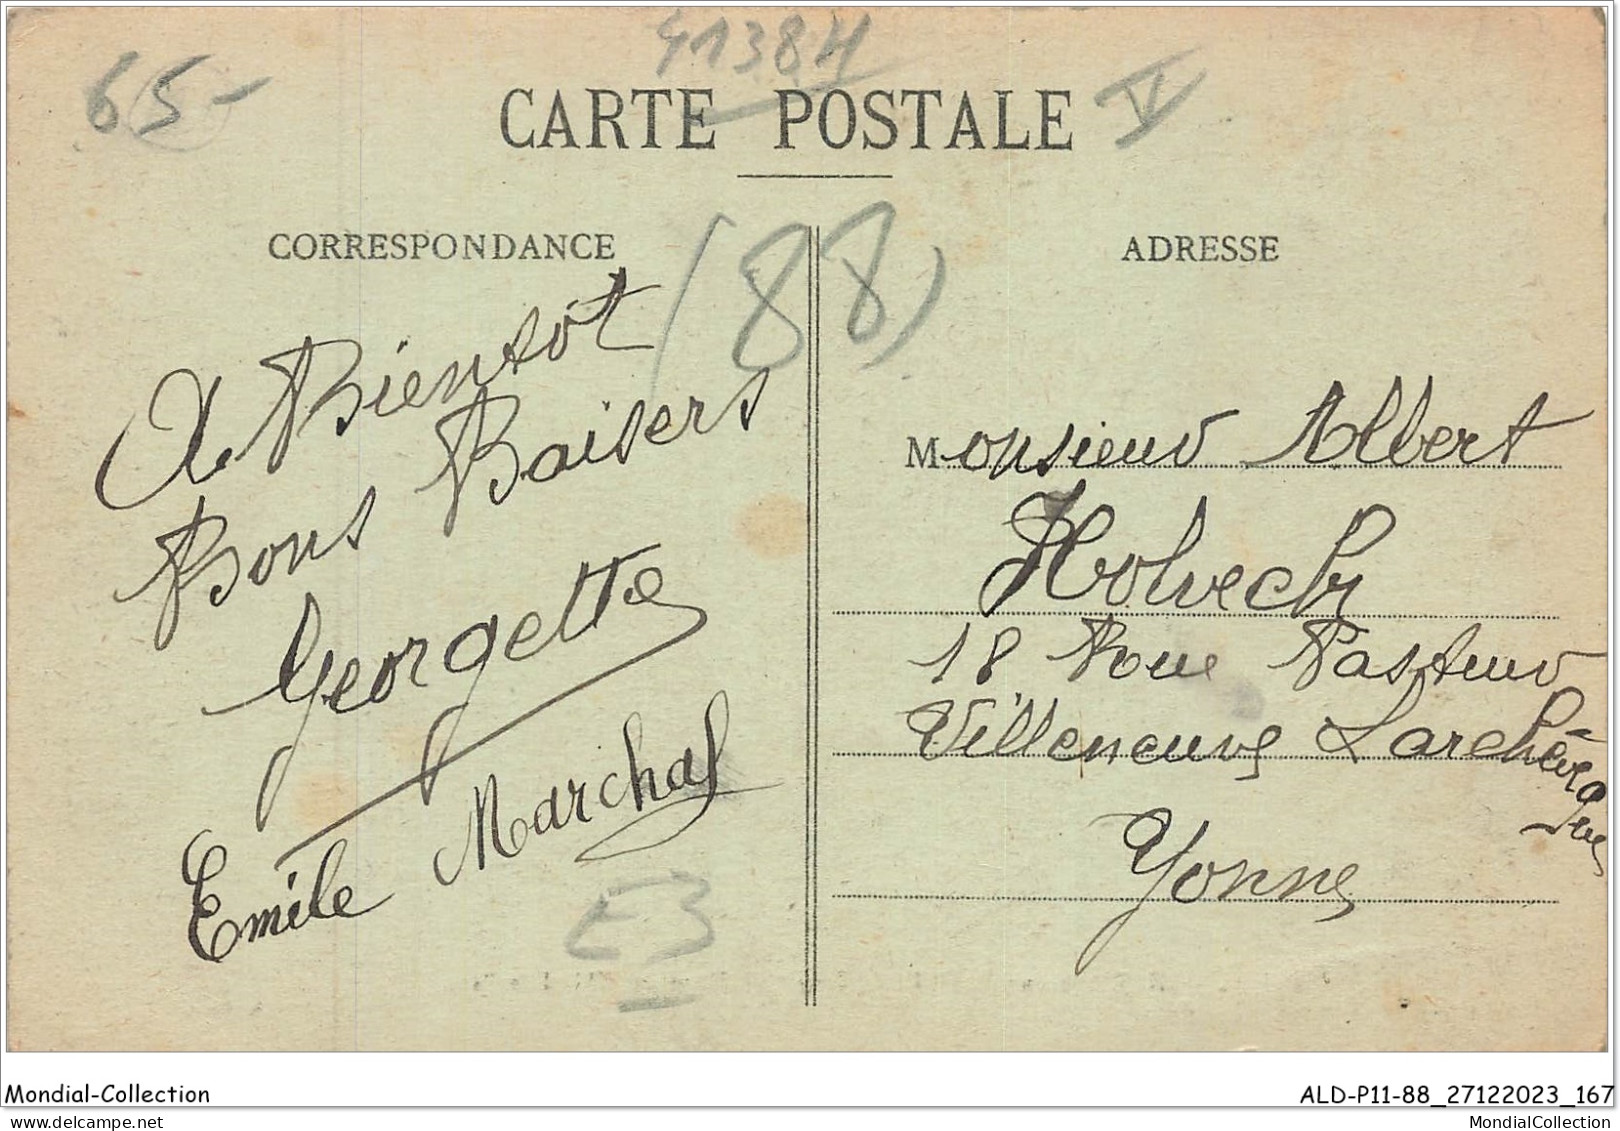 65-
41384
CARTE POSTALE
V
CORRESPONDANCE
(88)
ADRESSE
A Bientôt
Bons Baisers
Georgette
Emile Marchal
E3
Monsieur Albert
Holveck
18 Rue Pasteur
Villeneuve Larchévêque
Yonne
Mondial-Collection
ALD-P11-88_27122023_167
mondial-collection.delcampe.net
MondialCollection